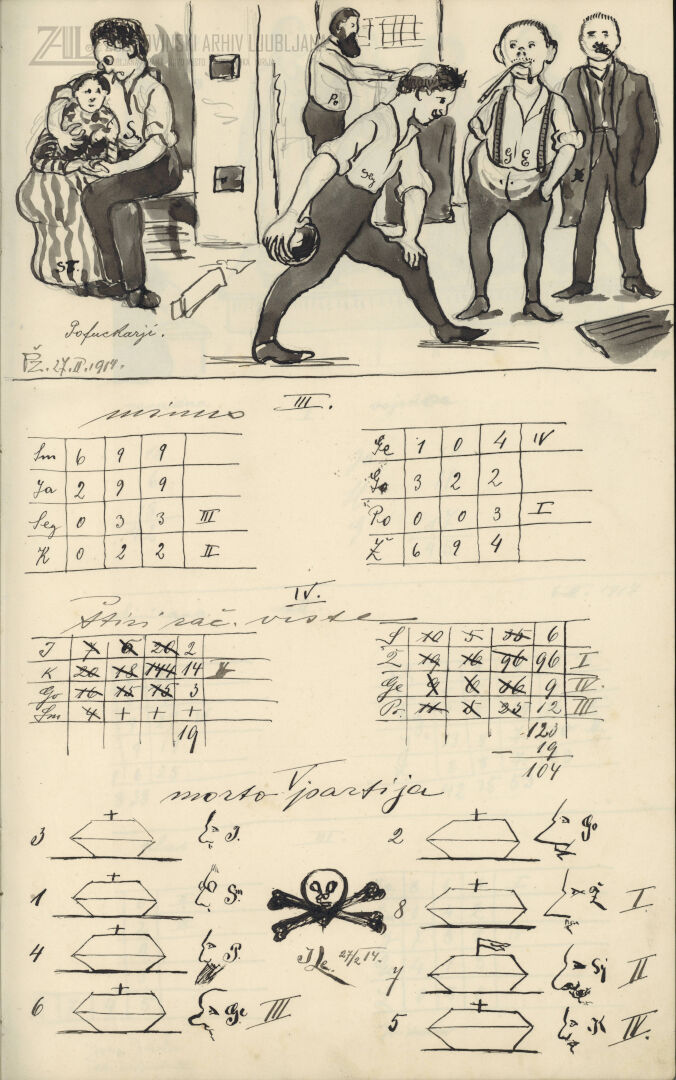 ZAL ZGODOVINSKI ARHIV LJUBLJANA
S.
Po
Seg
G E
ST.
Pofuckarji.
PŽ. 27.II.1914.
minus III.
Sm 6 9 9
Ja 2 9 9
Seg 0 3 3 III
K 0 2 2 II
Ge 1 0 4 IV
Go 3 2 2
Po 0 0 3 I
Ž 6 9 4
IV.
Štiri rač. vrste
J 7 6 20 2
K 20 18 144 14
Go 16 15 15 3
Sm 4 + + +
19
S 10 5 35 6
Ž 19 16 96 96 I
Ge 9 6 36 9 IV.
Po. 11 5 25 12 III
123
- 19
104
V
morto partija
3 J.
1 Sm
4 P.
6 Ge III
27/2 14.
2 Go
8 Ž I.
7 Sj II
5 K IV.